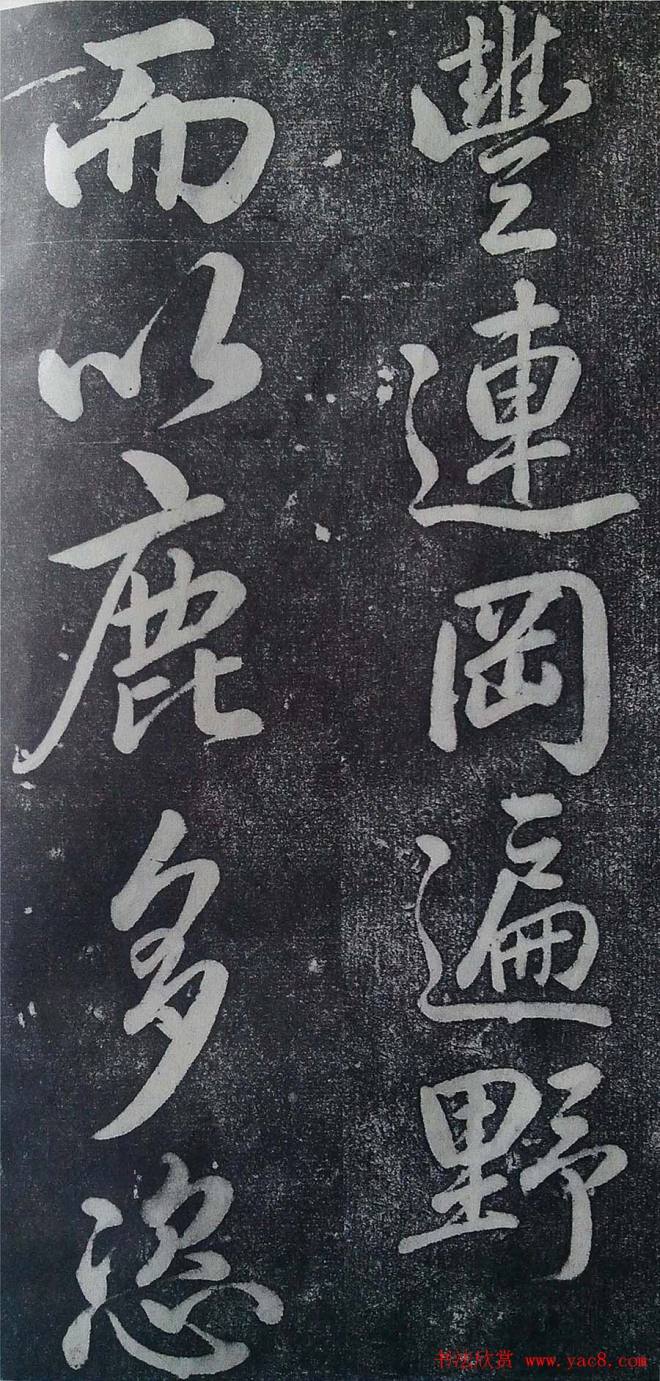 豐連岡遍野
而以鹿多恣
书法欣赏 www.yac8.com